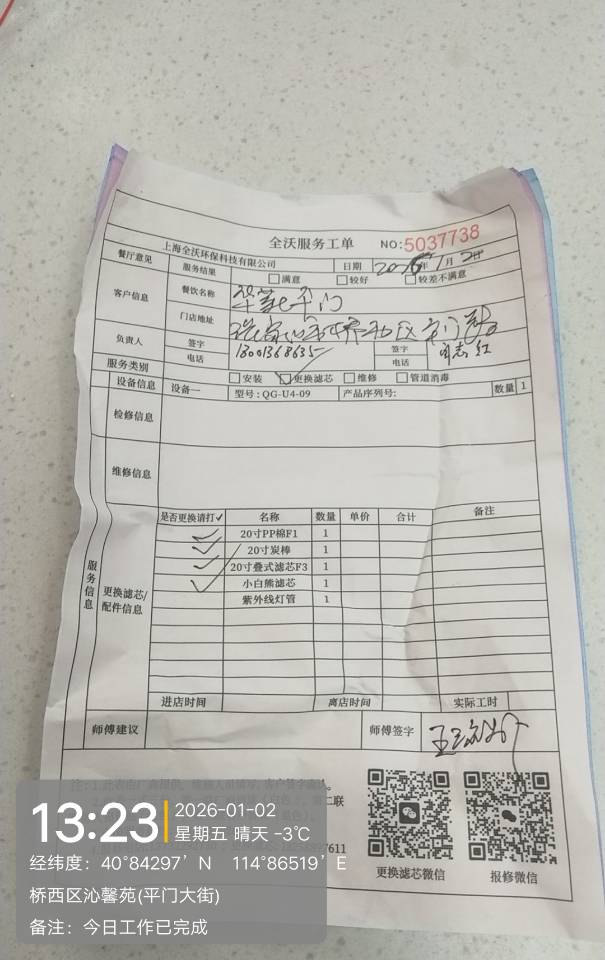 全沃服务工单 NO:5037738
上海全沃环保科技有限公司 日期 2026年1月2日
餐厅意见 服务结果 满意 较好 较差不满意
客户信息 餐饮名称 平门
门店地址
负责人 签字 签字
电话 13001368635 电话
服务类别 安装 更换滤芯 维修 管道消毒
设备信息 设备一 型号:QG-U4-09 产品序列号: 数量 1
检修信息
维修信息
服务信息
更换滤芯/配件信息
是否更换请打✓ 名称 数量 单价 合计 备注
✓ 20寸PP棉F1 1
✓ 20寸炭棒 1
✓ 20寸叠式滤芯F3 1
✓ 小白熊滤芯 1
紫外线灯管 1
进店时间 离店时间 实际工时
师傅建议 师傅签字
更换滤芯微信 报修微信
13:23
2026-01-02
星期五 晴天 -3℃
经纬度: 40°84297′ N 114°86519′ E
桥西区沁馨苑(平门大街)
备注: 今日工作已完成